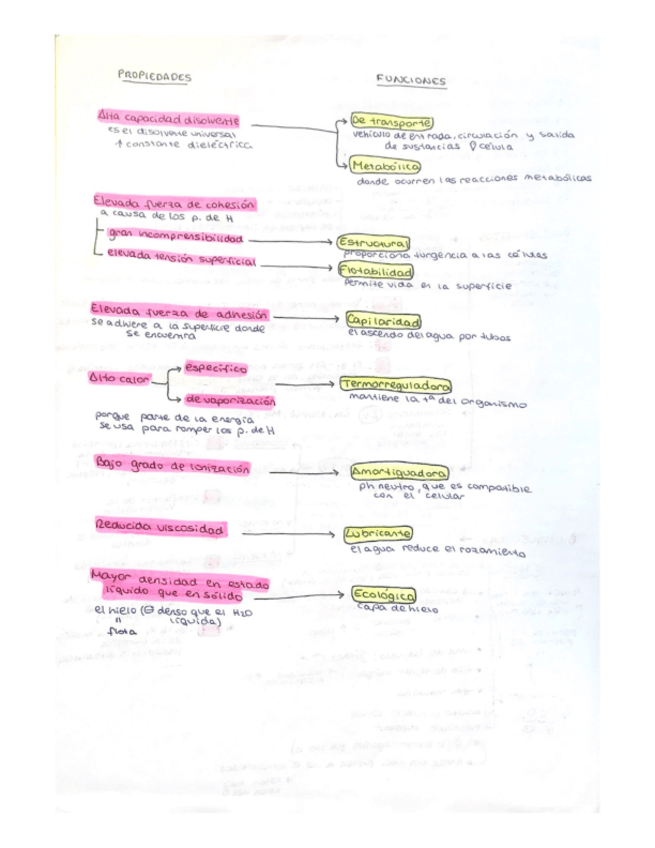 PROPIEDADES
FUNCIONES
Alta capacidad disolvente
es el disolvente universal
↑ constante dieléctrica
De transporte
vehículo de entrada, circulación y salida
de sustancias célula
Metabólica
donde ocurren las reacciones metabólicas
Elevada fuerza de cohesión
a causa de los p. de H
gran incomprensibilidad
Estructural
proporciona turgencia a las células
elevada tensión superficial
Flotabilidad
permite vida en la superficie
Elevada fuerza de adhesión
se adhiere a la superficie donde
se encuentra
Capilaridad
el ascenso del agua por tubos
Alto calor
específico
de vaporización
porque parte de la energía
se usa para romper los p. de H
Termorreguladora
mantiene la tª del organismo
Bajo grado de ionización
Amortiguadora
ph neutro, que es compatible
con el celular
Reducida viscosidad
Lubricante
el agua reduce el rozamiento
Mayor densidad en estado
líquido que en sólido
el hielo (⊖ denso que el H2O
líquida)
"
flota
Ecológica
capa de hielo